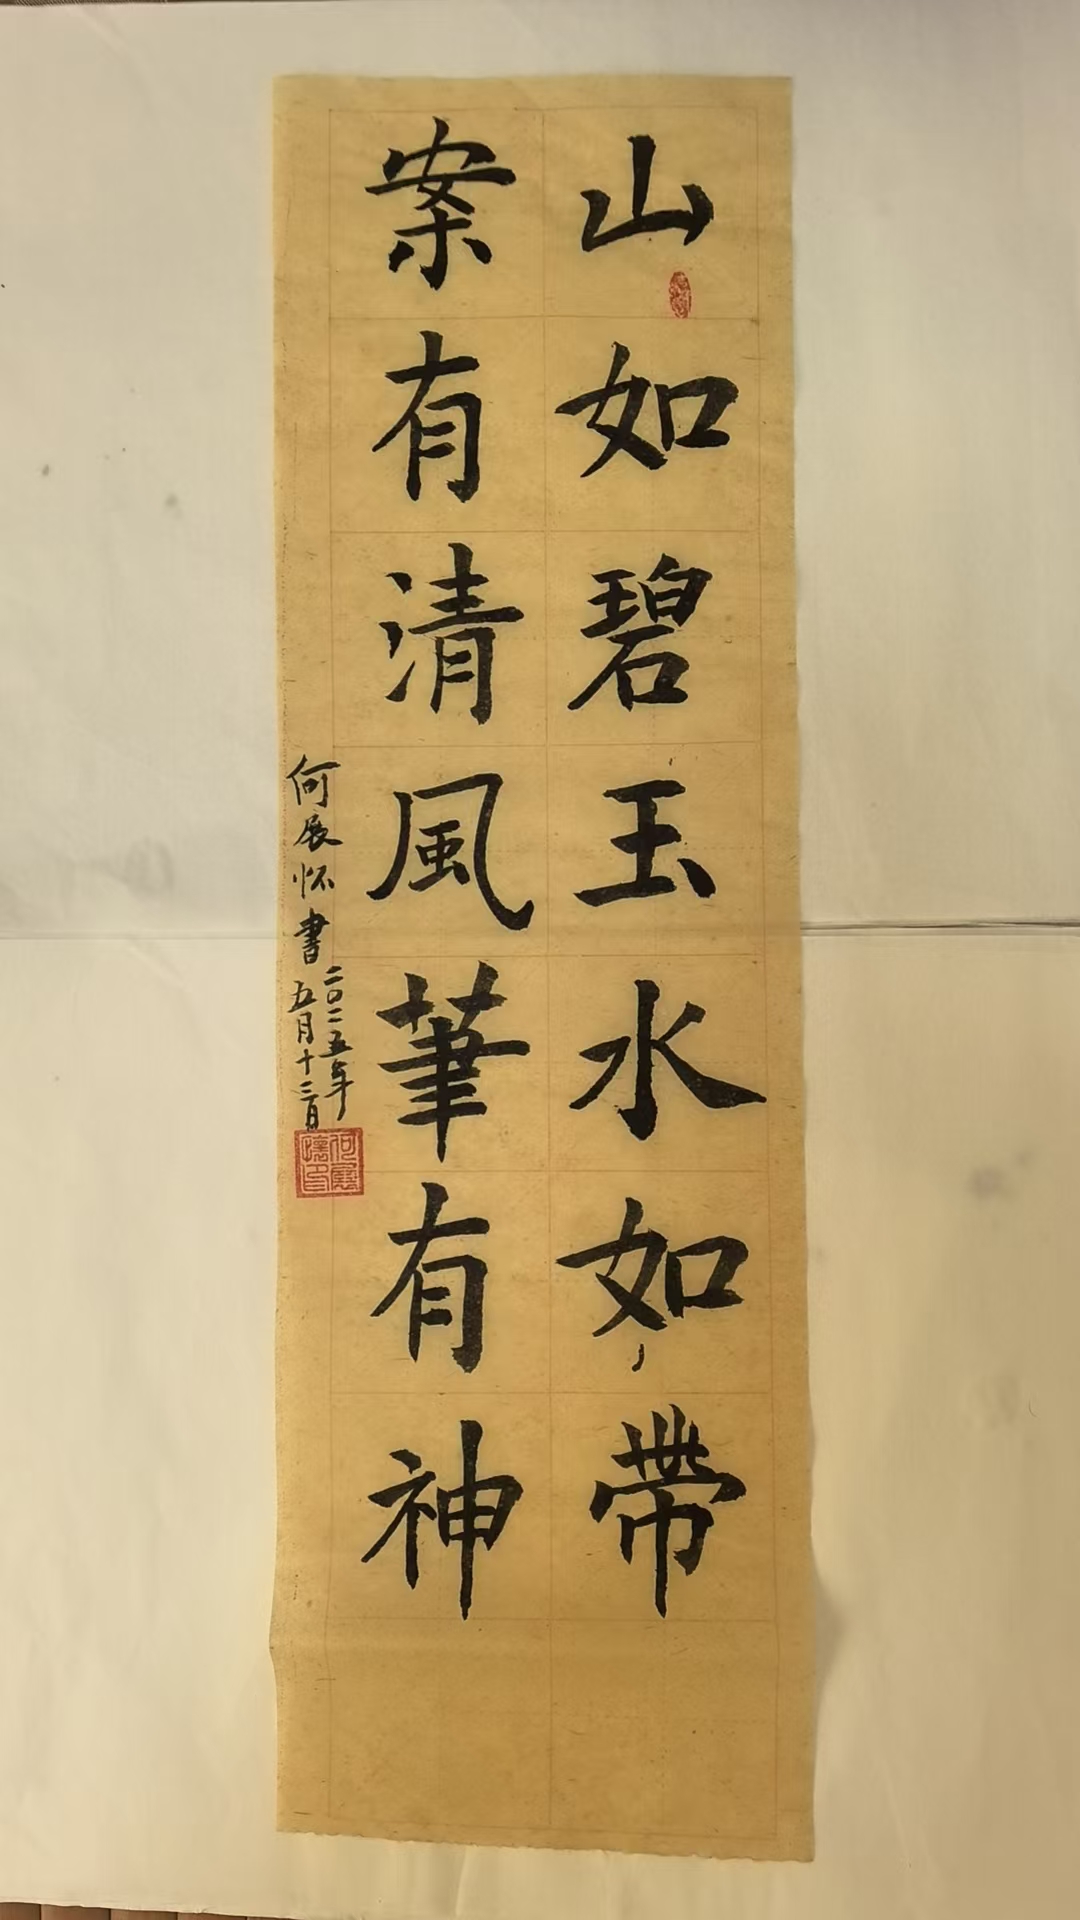 山如碧玉水如帶
案有清風筆有神
何展怀書
二〇二五年
五月十三日